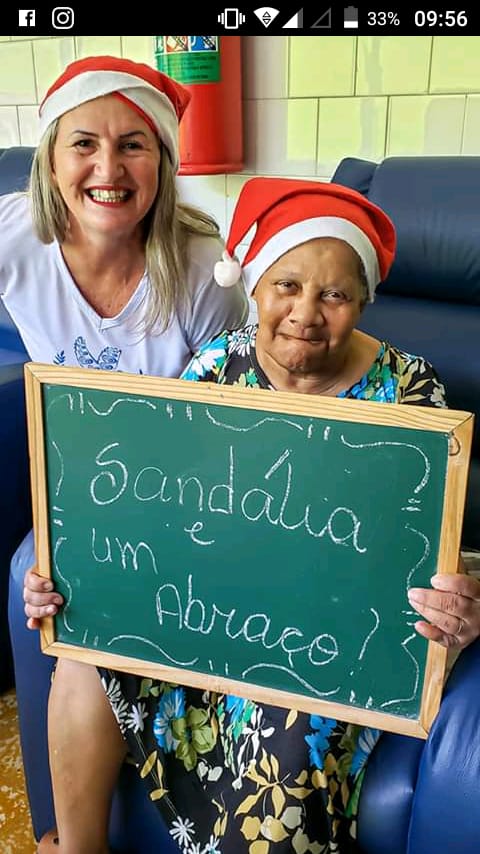 33% 09:56
Sandália
e
um
Abraço!